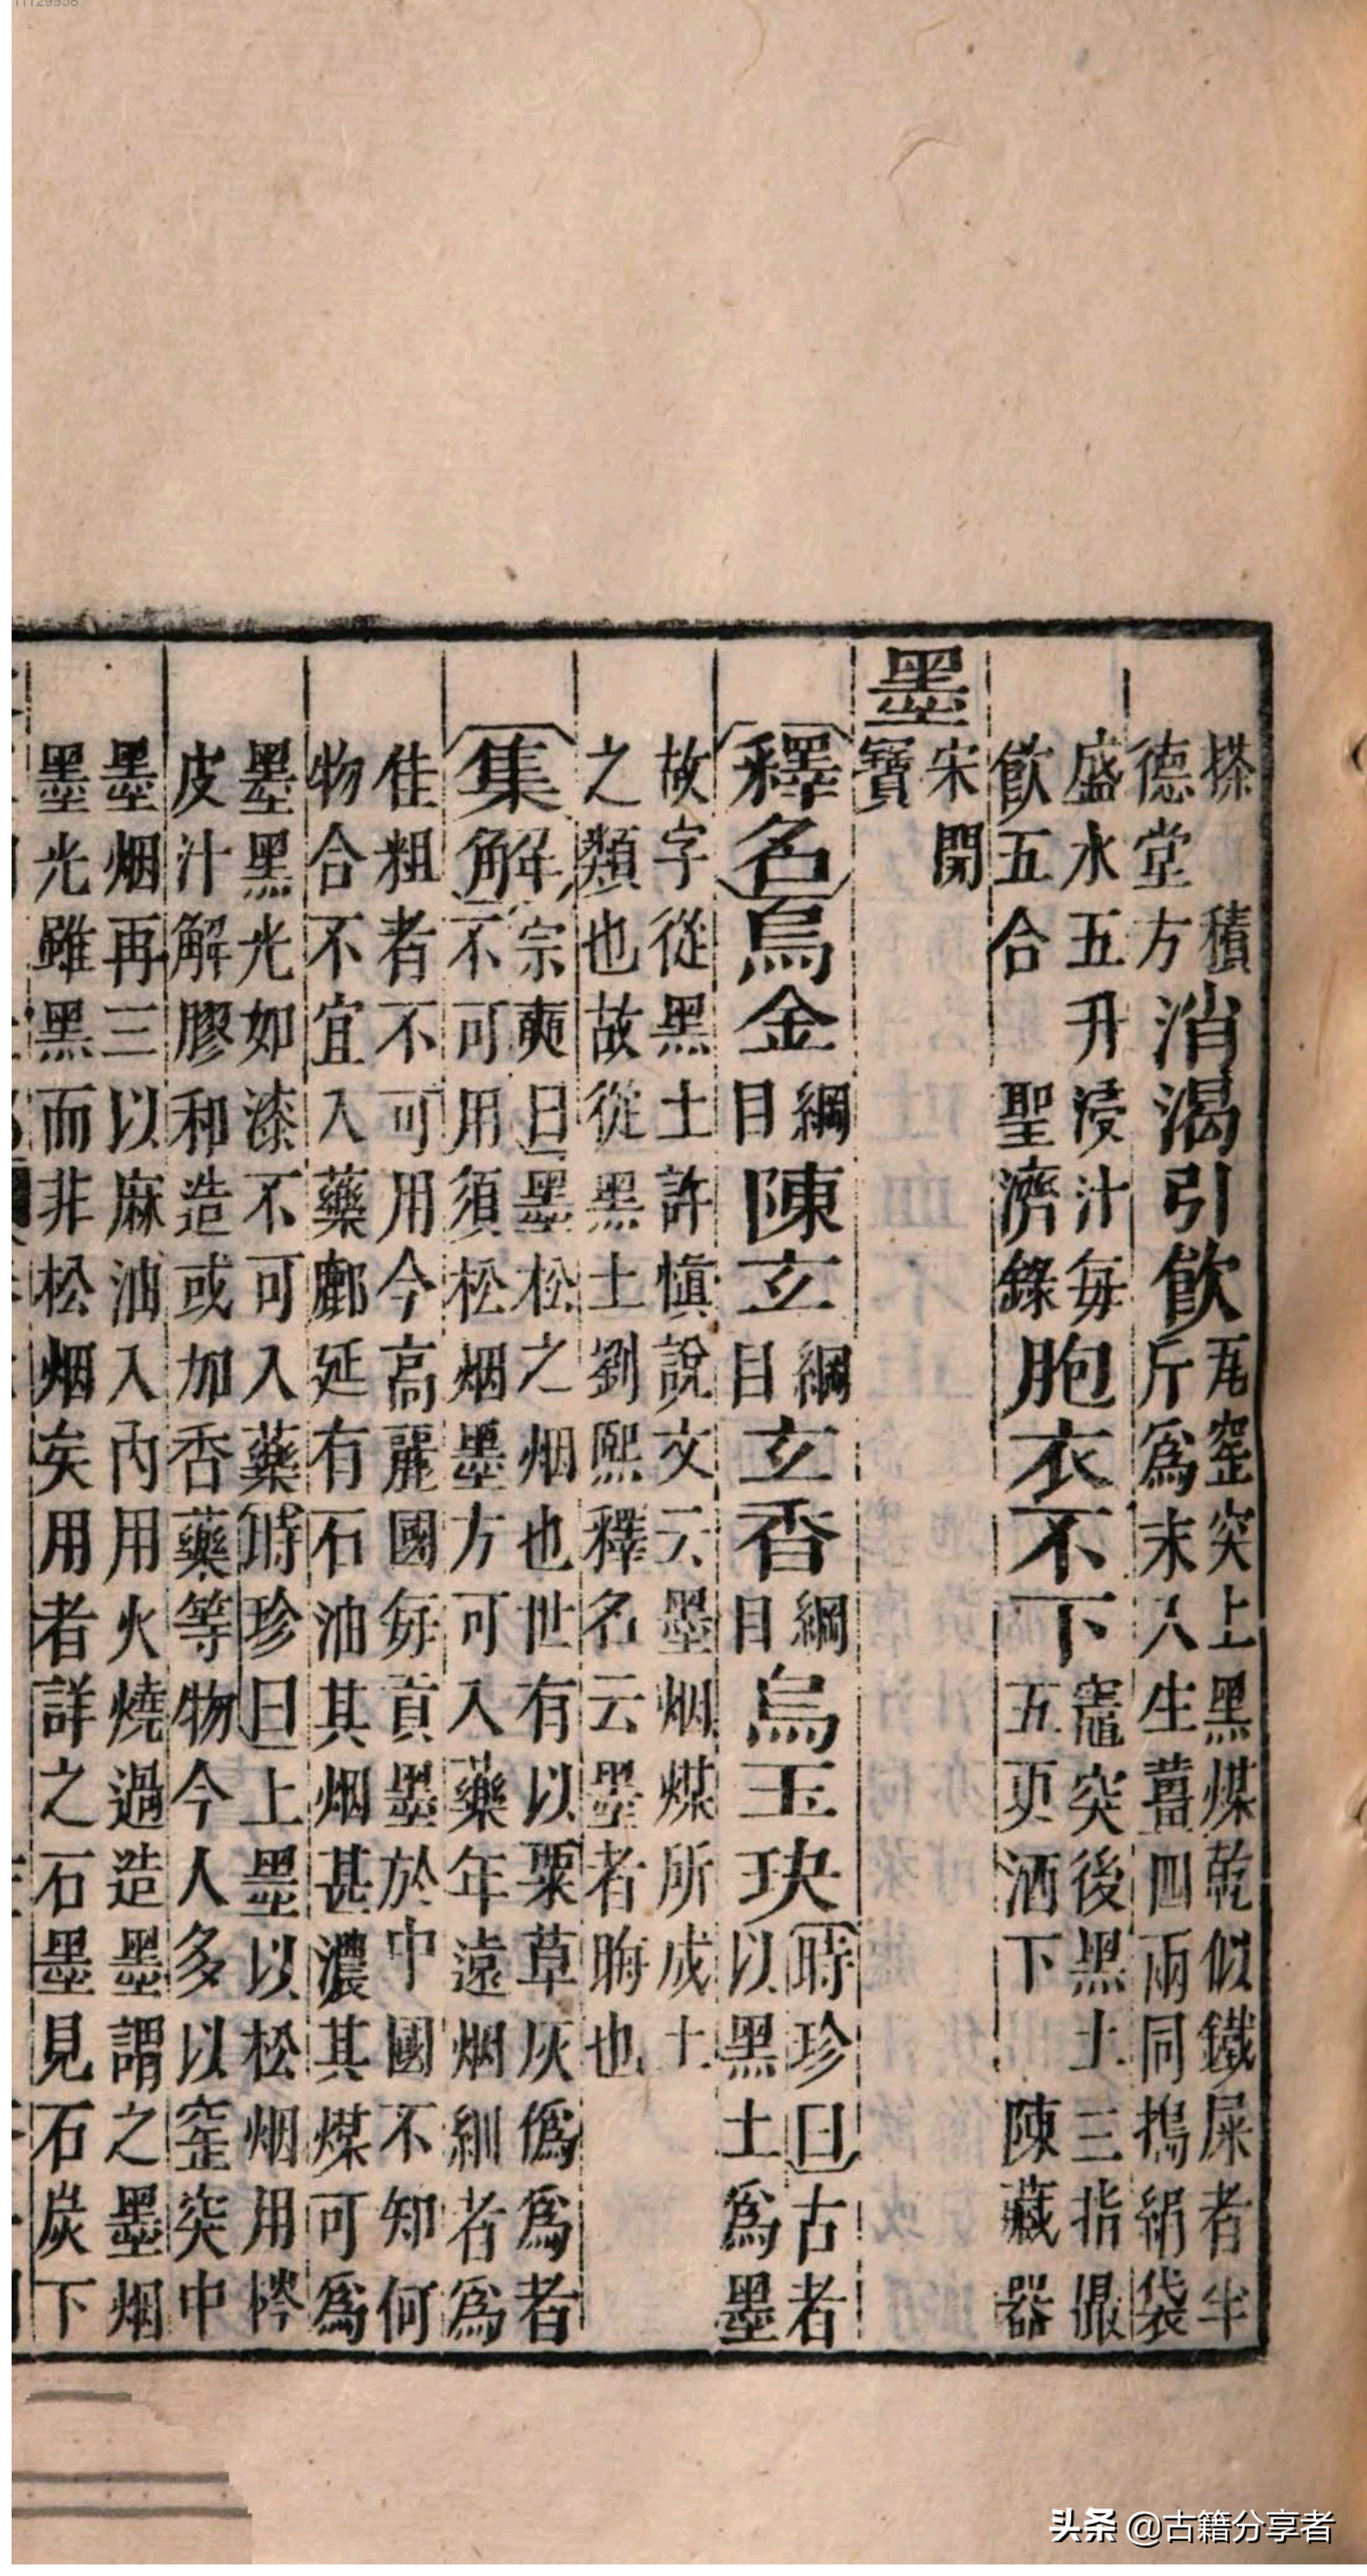 搽積
德堂方
消渴引飲
瓦窑突上黑煤乾似鐵屎者半
斤爲末入生薑四兩同搗絹袋
盛水五升浸汁每
飲五合
聖濟錄
胞衣不下
竈突後黑土三指撮
五更酒下
陳藏器
墨
宋開
寶
釋名
烏金
綱目
陳玄
綱目
玄香
綱目
烏玉玦
時珍曰古者
以黑土爲墨
故字從黑土許慎說文云墨烟煤所成土
之類也故從黑土劉熙釋名云墨者晦也
集解
宗奭曰墨松之烟也世有以粟草灰僞爲者
不可用須松烟墨方可入藥年遠烟細者爲
佳粗者不可用今高麗國每貢墨於中國不知何
物合不宜入藥鄜延有石油其烟甚濃其煤可爲
墨黑光如漆不可入藥時珍曰上墨以松烟用梣
皮汁解膠和造或加香藥等物今人多以窑突中
墨烟再三以麻油入內用火燒過造墨謂之墨烟
墨光雖黑而非松烟矣用者詳之石墨見石炭下
头条 @古籍分享者